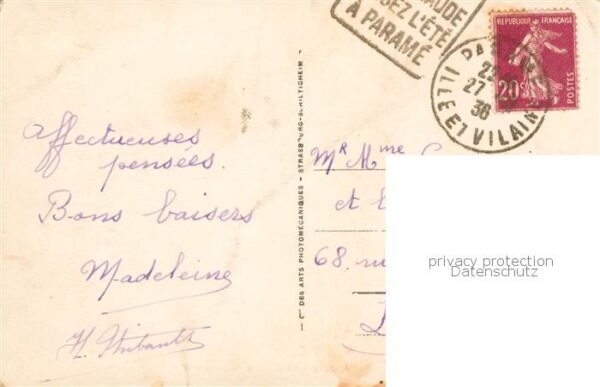 Affectueuses
pensées.
Bons baisers
Madeleine
H. Thibault
Cie DES ARTS PHOTOMÉCANIQUES - STRASBOURG-SCHILTIGHEIM
AUDE
EZ L'ÉTÉ
À PARAMÉ
PA
27
36
ILLE ET VILAINE
RÉPUBLIQUE FRANÇAISE
20c
POSTES
Mr Mme
et
68, ru
privacy protection
Datenschutz